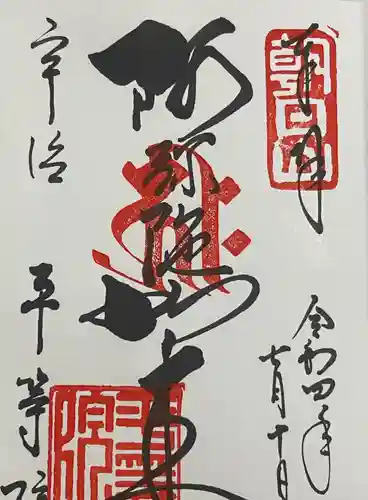 奉拝
朝日山
令和四年
七月十日
阿弥陀如来
宇治
平等院